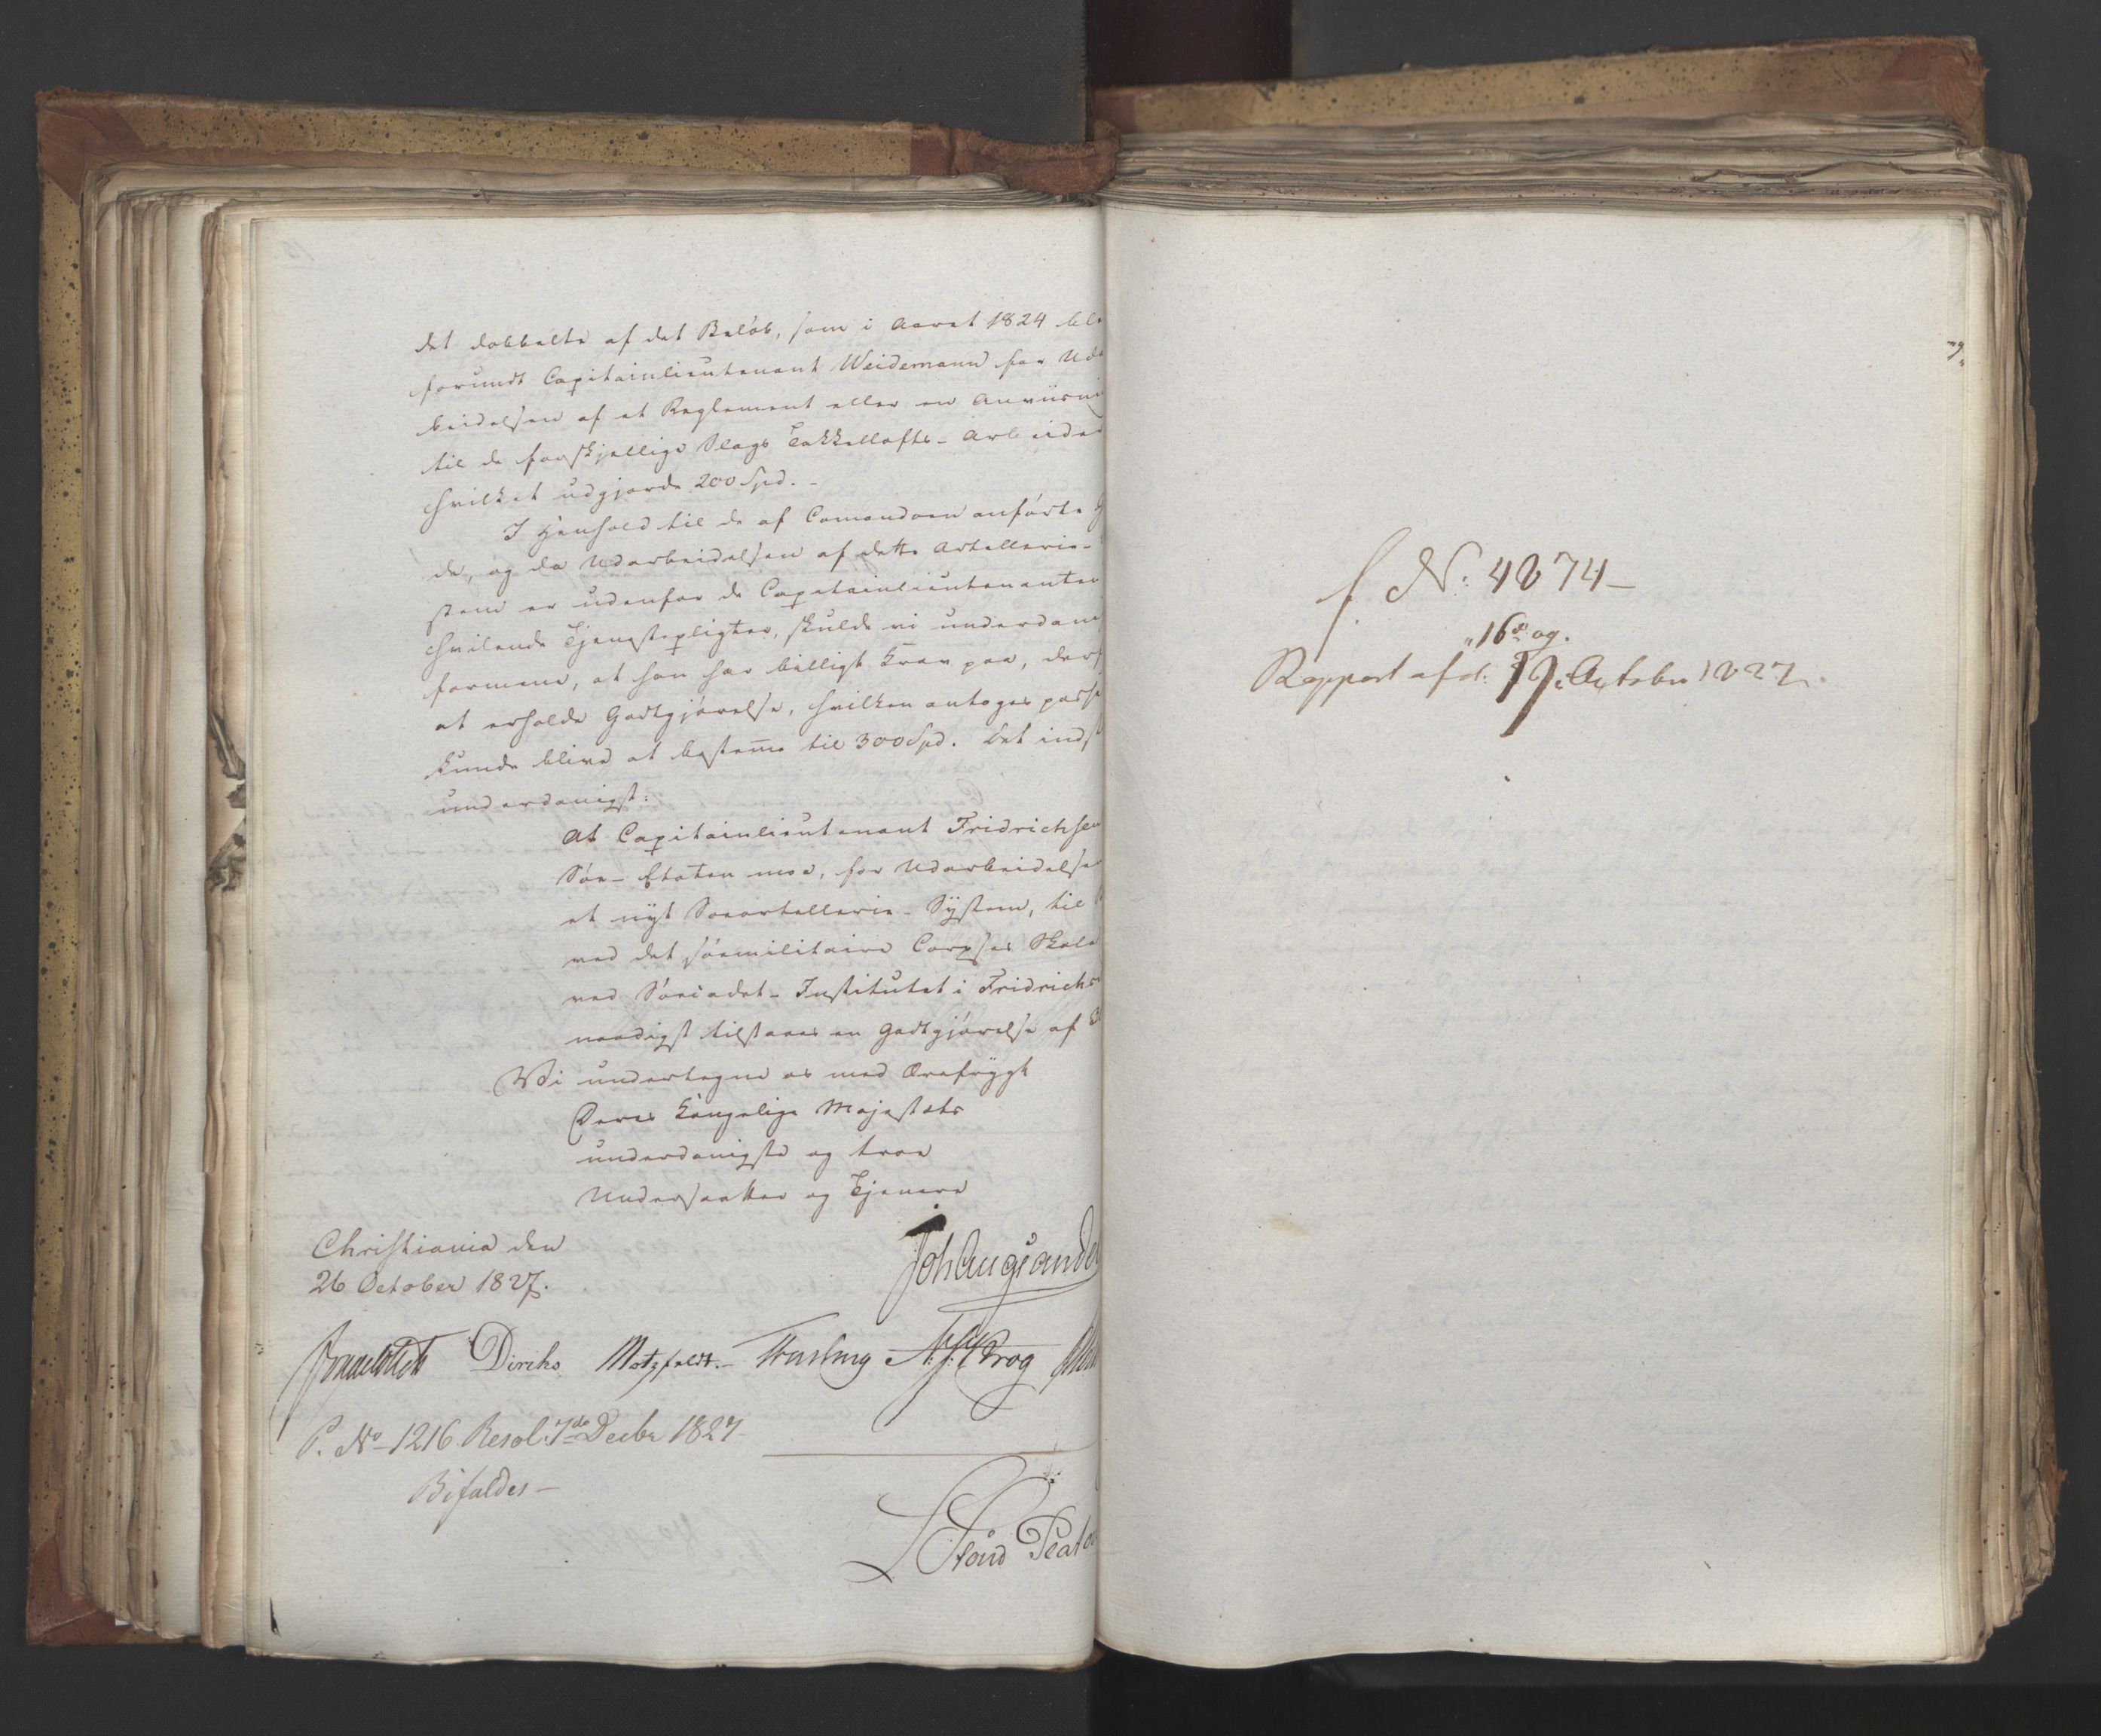 det dobbelte af det Beløb, som i Aaret 1824 ble
forundt Capitainlieutenant Weidemann for Uda
beidelsen af et Reglement eller en Anviisni
til de forskjellige Slags Takkellofts-Arbeider
hvilket udgjorde 200 Spd. -
I Henhold til de af Comandoen anførte G
de, og da Udarbeidelsen af dette Artellerie-
stem er udenfor de Capitainlieutenanten
hvilende Tjenestepligter, skulde vi underdan
formene, at han har billigt Krav paa, derf
at erholde Godtgjørelse, hvilken antages passe
kunde blive at bestem̅e til 300 Spd. Det inds
underdanigst:
At Capitainlieutenant Fridrichsen
Søe-Etaten maa, for Udarbeidelse
et nyt Søeartellerie-System, til
ved det søemilitaire Corpses Skole
ved Søecadet-Institutet i Fridrichs
naadigst tilstaaes en Godtgjørelse af 3
Vi undertegne os med Ærefrygt
Deres Kongelige Majestæts
underdanigste og troe
Undersaatter og Tjenere
Christiania den
26 October 1827.
Joh Aug Sande
Diriks Motzfeldt. - Krog
P. No 1216 Resol. 7de Decbr 1827
Bifaldes -
f. N: 4874 -
"16de og.
Rapport af d: 19. October 1827.